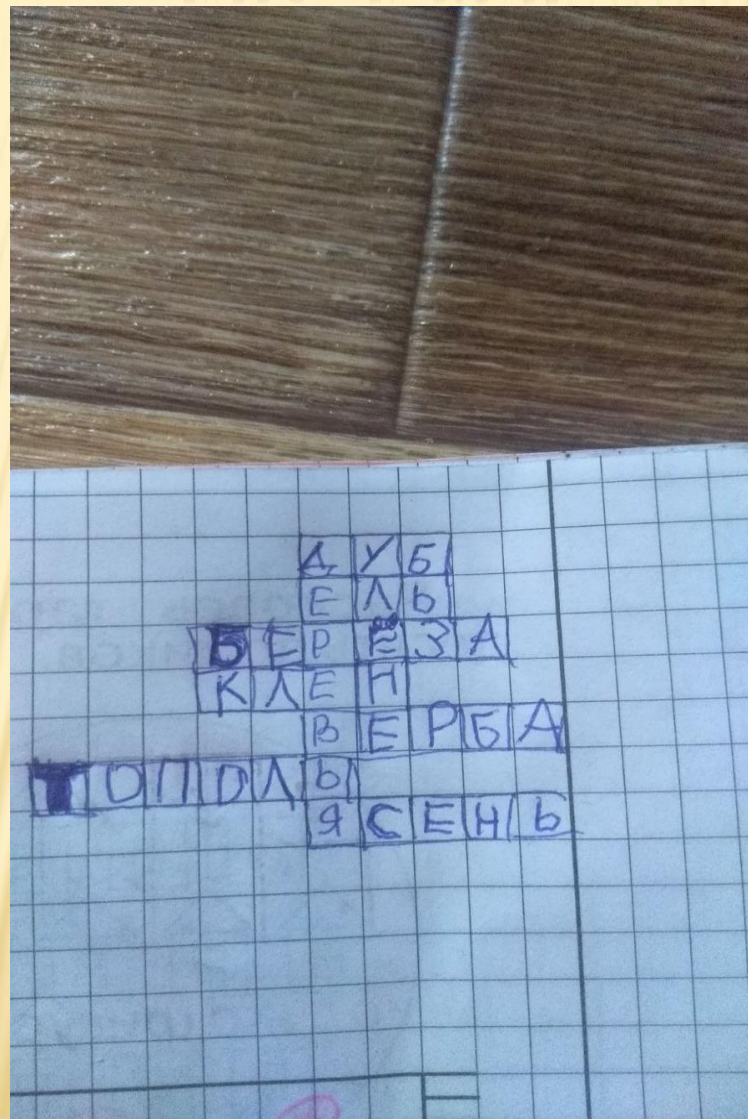 ДУБ
ЕЛЬ
БЕРЁЗА
КЛЕН
ВЕРБА
ТОПОЛЬ
ЯСЕНЬ